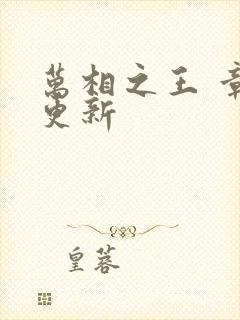 萬相之王 章
更新
皇蓉